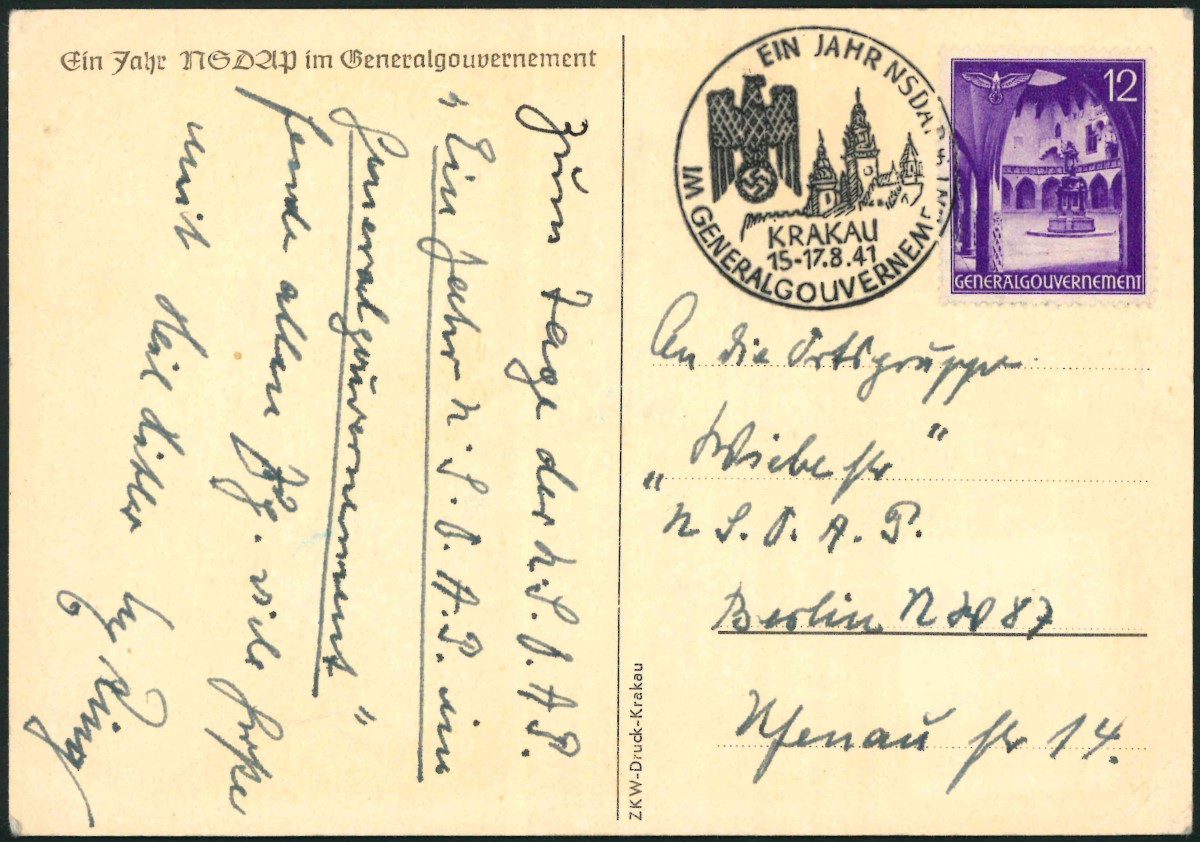 Ein Jahr NSDAP im Generalgouvernement
Zum Tage der N.S.D.A.P.
„Ein Jahr N.S.D.A.P. im
Generalgouvernement"
sende allen Pg. viele Grüße
mit Heil Hitler
ZKW-Druck-Krakau
EIN JAHR NSDAP
IM GENERALGOUVERNEME
KRAKAU
15-17.8.41
12
GENERALGOUVERNEMENT
An die Ortsgruppe
„Wiebestr"
N.S.D.A.P.
Berlin NW 87
Ufenau str 14.